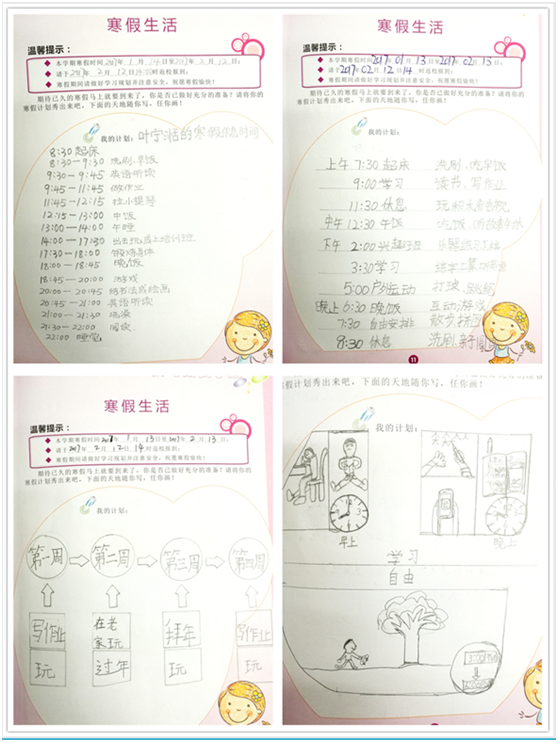 寒假生活
温馨提示：
本学期寒假时间2017年1月14日至2017年2月12日；
请于2017年2月12日 时返校报到；
寒假期间请做好学习规划并注意安全，祝愿寒假愉快！
期待已久的寒假马上就要到来了，你是否已做好充分的准备！请将你的
寒假计划秀出来吧，下面的天地随你写，任你画！
我的计划：
的寒假作息时间
8:30起床
8:30－9:30 洗刷、早饭
9:30－9:45 英语听读
9:45－11:45 做作业
11:45－12:15 拉小提琴
12:15－13:00 中饭
13:00－14:00 午睡
14:00－17:30 出去玩或上培训班
17:30－18:00 锻炼身体
18:00－18:45 晚饭
18:45－20:00 游戏
20:00－20:45 练书法或绘画
20:45－21:00 英语听读
21:00－21:30 洗澡
21:30－22:00 阅读
22:00 睡觉
寒假生活
温馨提示：
本学期寒假时间2017年01月13日至2017年02月13日；
请于2017年02月12日14时返校报到；
寒假期间请做好学习规划并注意安全，祝愿寒假愉快！
期待已久的寒假马上就要到来了，你是否已做好充分的准备！请将你的
寒假计划秀出来吧，下面的天地随你写，任你画！
我的计划：
上午 7:30起床 洗刷、吃早饭
9:00学习 读书、写作业
11:30休息
中午 12:30午饭
下午 2:00兴趣班
3:30学习
5:00户外运动 打球
晚上 6:30晚饭 互动游戏
7:30 自由安排 散步
8:30 休息 洗刷
11
寒假生活
温馨提示：
本学期寒假时间2017年1月13日至2017年2月13日；
请于2017年2月12日14时返校报到；
寒假期间请做好学习规划并注意安全，祝愿寒假愉快！
期待已久的寒假马上就要到来了，你是否已做好充分的准备！请将你的
寒假计划秀出来吧，下面的天地随你写，任你画！
我的计划：
第一周 第二周 第三周 第四周
写作业 在老家玩 拜年 写作业
玩 过年 玩 玩
假计划秀出来吧，下面的天地随你写，任你画！
我的计划：
早上 晚上
学习
自由